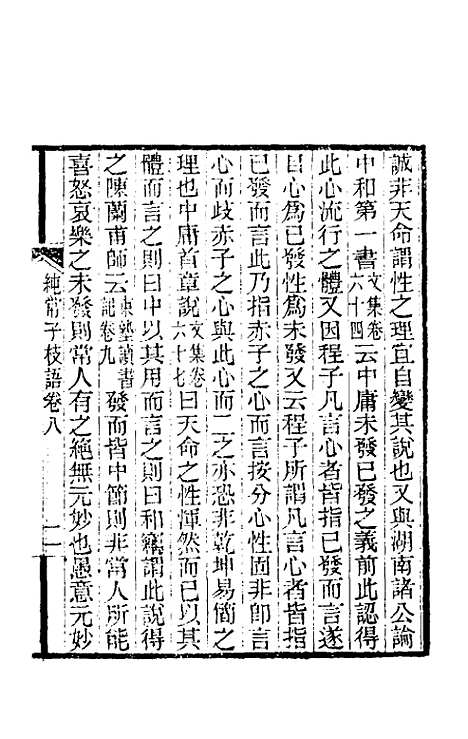 誠非天命謂性之理宜自變其說也又與湖南諸公論
中和第一書文集卷六十四云中庸未發已發之義前此認得
此心流行之體又因程子凡言心者皆指已發而言遂
目心爲已發性爲未發又云程子所謂凡言心者皆指
已發而言此乃指赤子之心而言按分心性固非卽言
心而歧赤子之心與此心而二之亦恐非乾坤易簡之
理也中庸首章說文集卷六十七曰天命之性渾然而已以其
體而言之則曰中以其用而言之則曰和竊謂此說得
之陳蘭甫師云東塾讀書記卷九發而皆中節則非常人所能
喜怒哀樂之未發則常人有之絶無元妙也愚意元妙
純常子枝語卷八
二